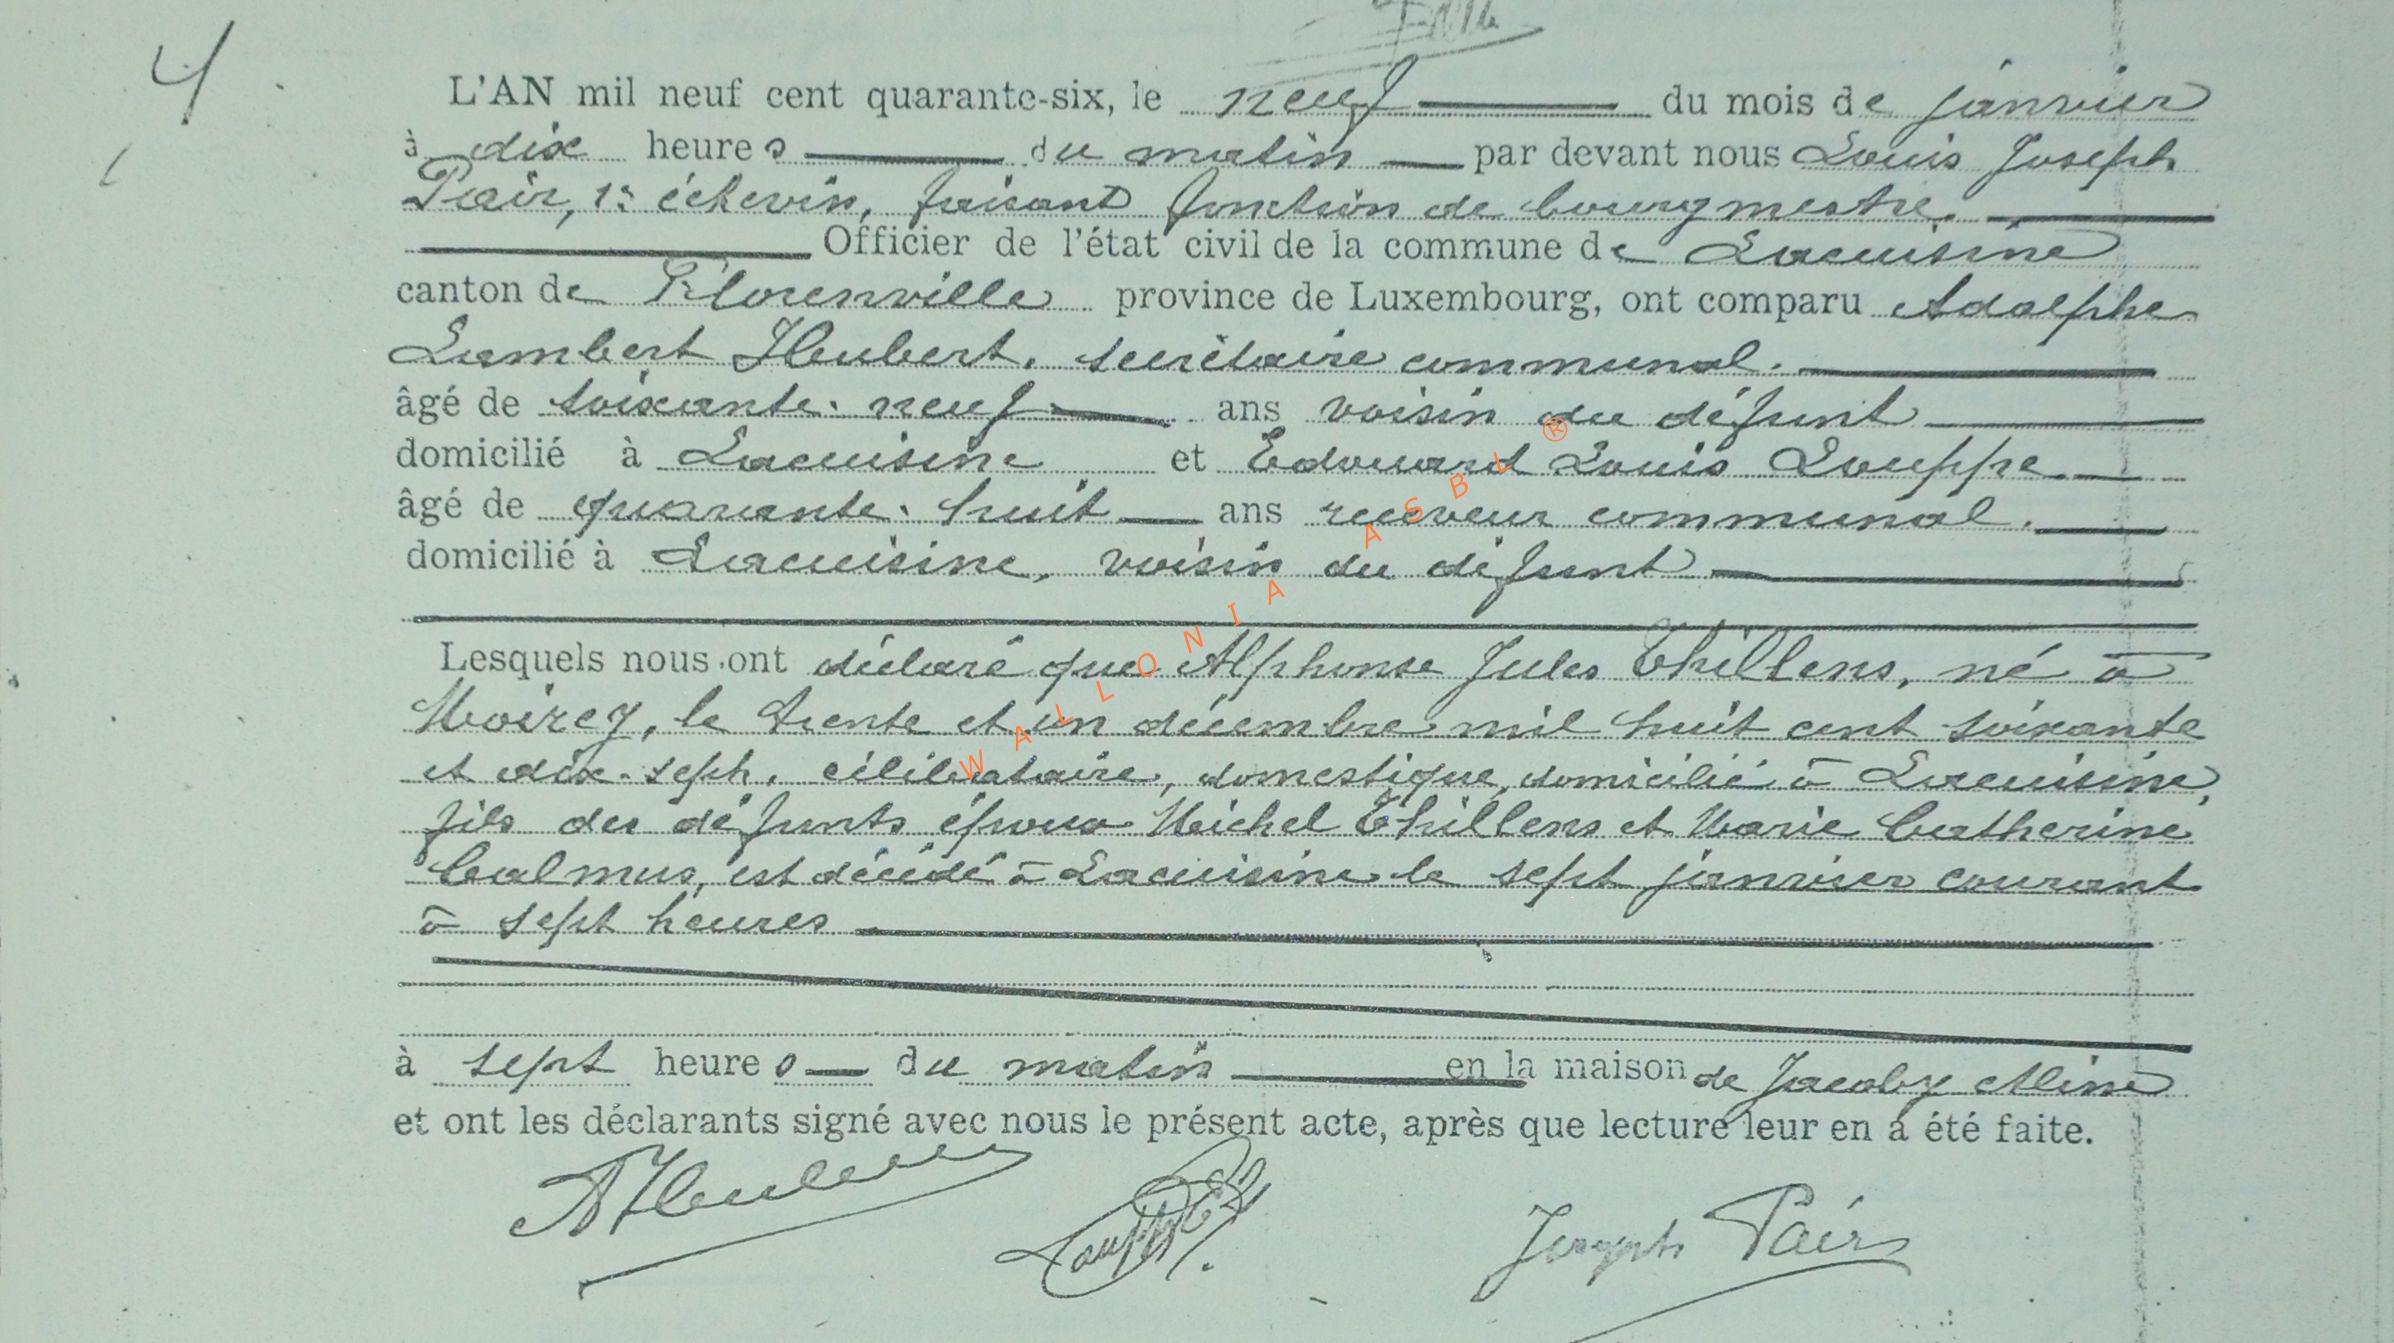 4
L'AN mil neuf cent quarante-six, le neuf du mois de janvier
à dix heures du matin par devant nous Louis Joseph
Pair, 1r échevin, faisant fonction de bourgmestre.
Officier de l'état civil de la commune de Lacuisine
canton de Florenville province de Luxembourg, ont comparu Adolphe
Lambert Hubert, secrétaire communal.
âgé de soixante-neuf ans voisin du défunt
domicilié à Lacuisine et Edouard Louis Louppe
âgé de quarante-huit ans receveur communal.
domicilié à Lacuisine, voisin du défunt
Lesquels nous ont déclaré que Alphonse Jules Thillens, né à
Moircy, le trente et un décembre mil huit cent soixante
et dix-sept, célibataire, domestique, domicilié à Lacuisine,
fils des défunts époux Michel Thillens et Marie Catherine
Calmus, est décédé à Lacuisine le sept janvier courant
à sept heures
à sept heures du matin en la maison de Jacoby Aline
et ont les déclarants signé avec nous le présent acte, après que lecture leur en a été faite.
Joseph Pair
WALLONIA ASBL ®